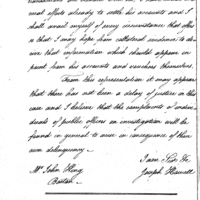 ional efforts already to settle his accounts and I
shall avail myself of every circumstance that offers
so that I may hope from collateral evidence to de-
rive that information which should appear in
point from his accounts and vouchers themselves.
From this representation it may appear
that there has not been a delay of justice in this
case and I believe that the complaints of indivi-
duals of public officers on investigation will be
found in general to arise in consequence of their
own delinquency
I am Sir &c
Mr John King
Joseph Howell
Boston